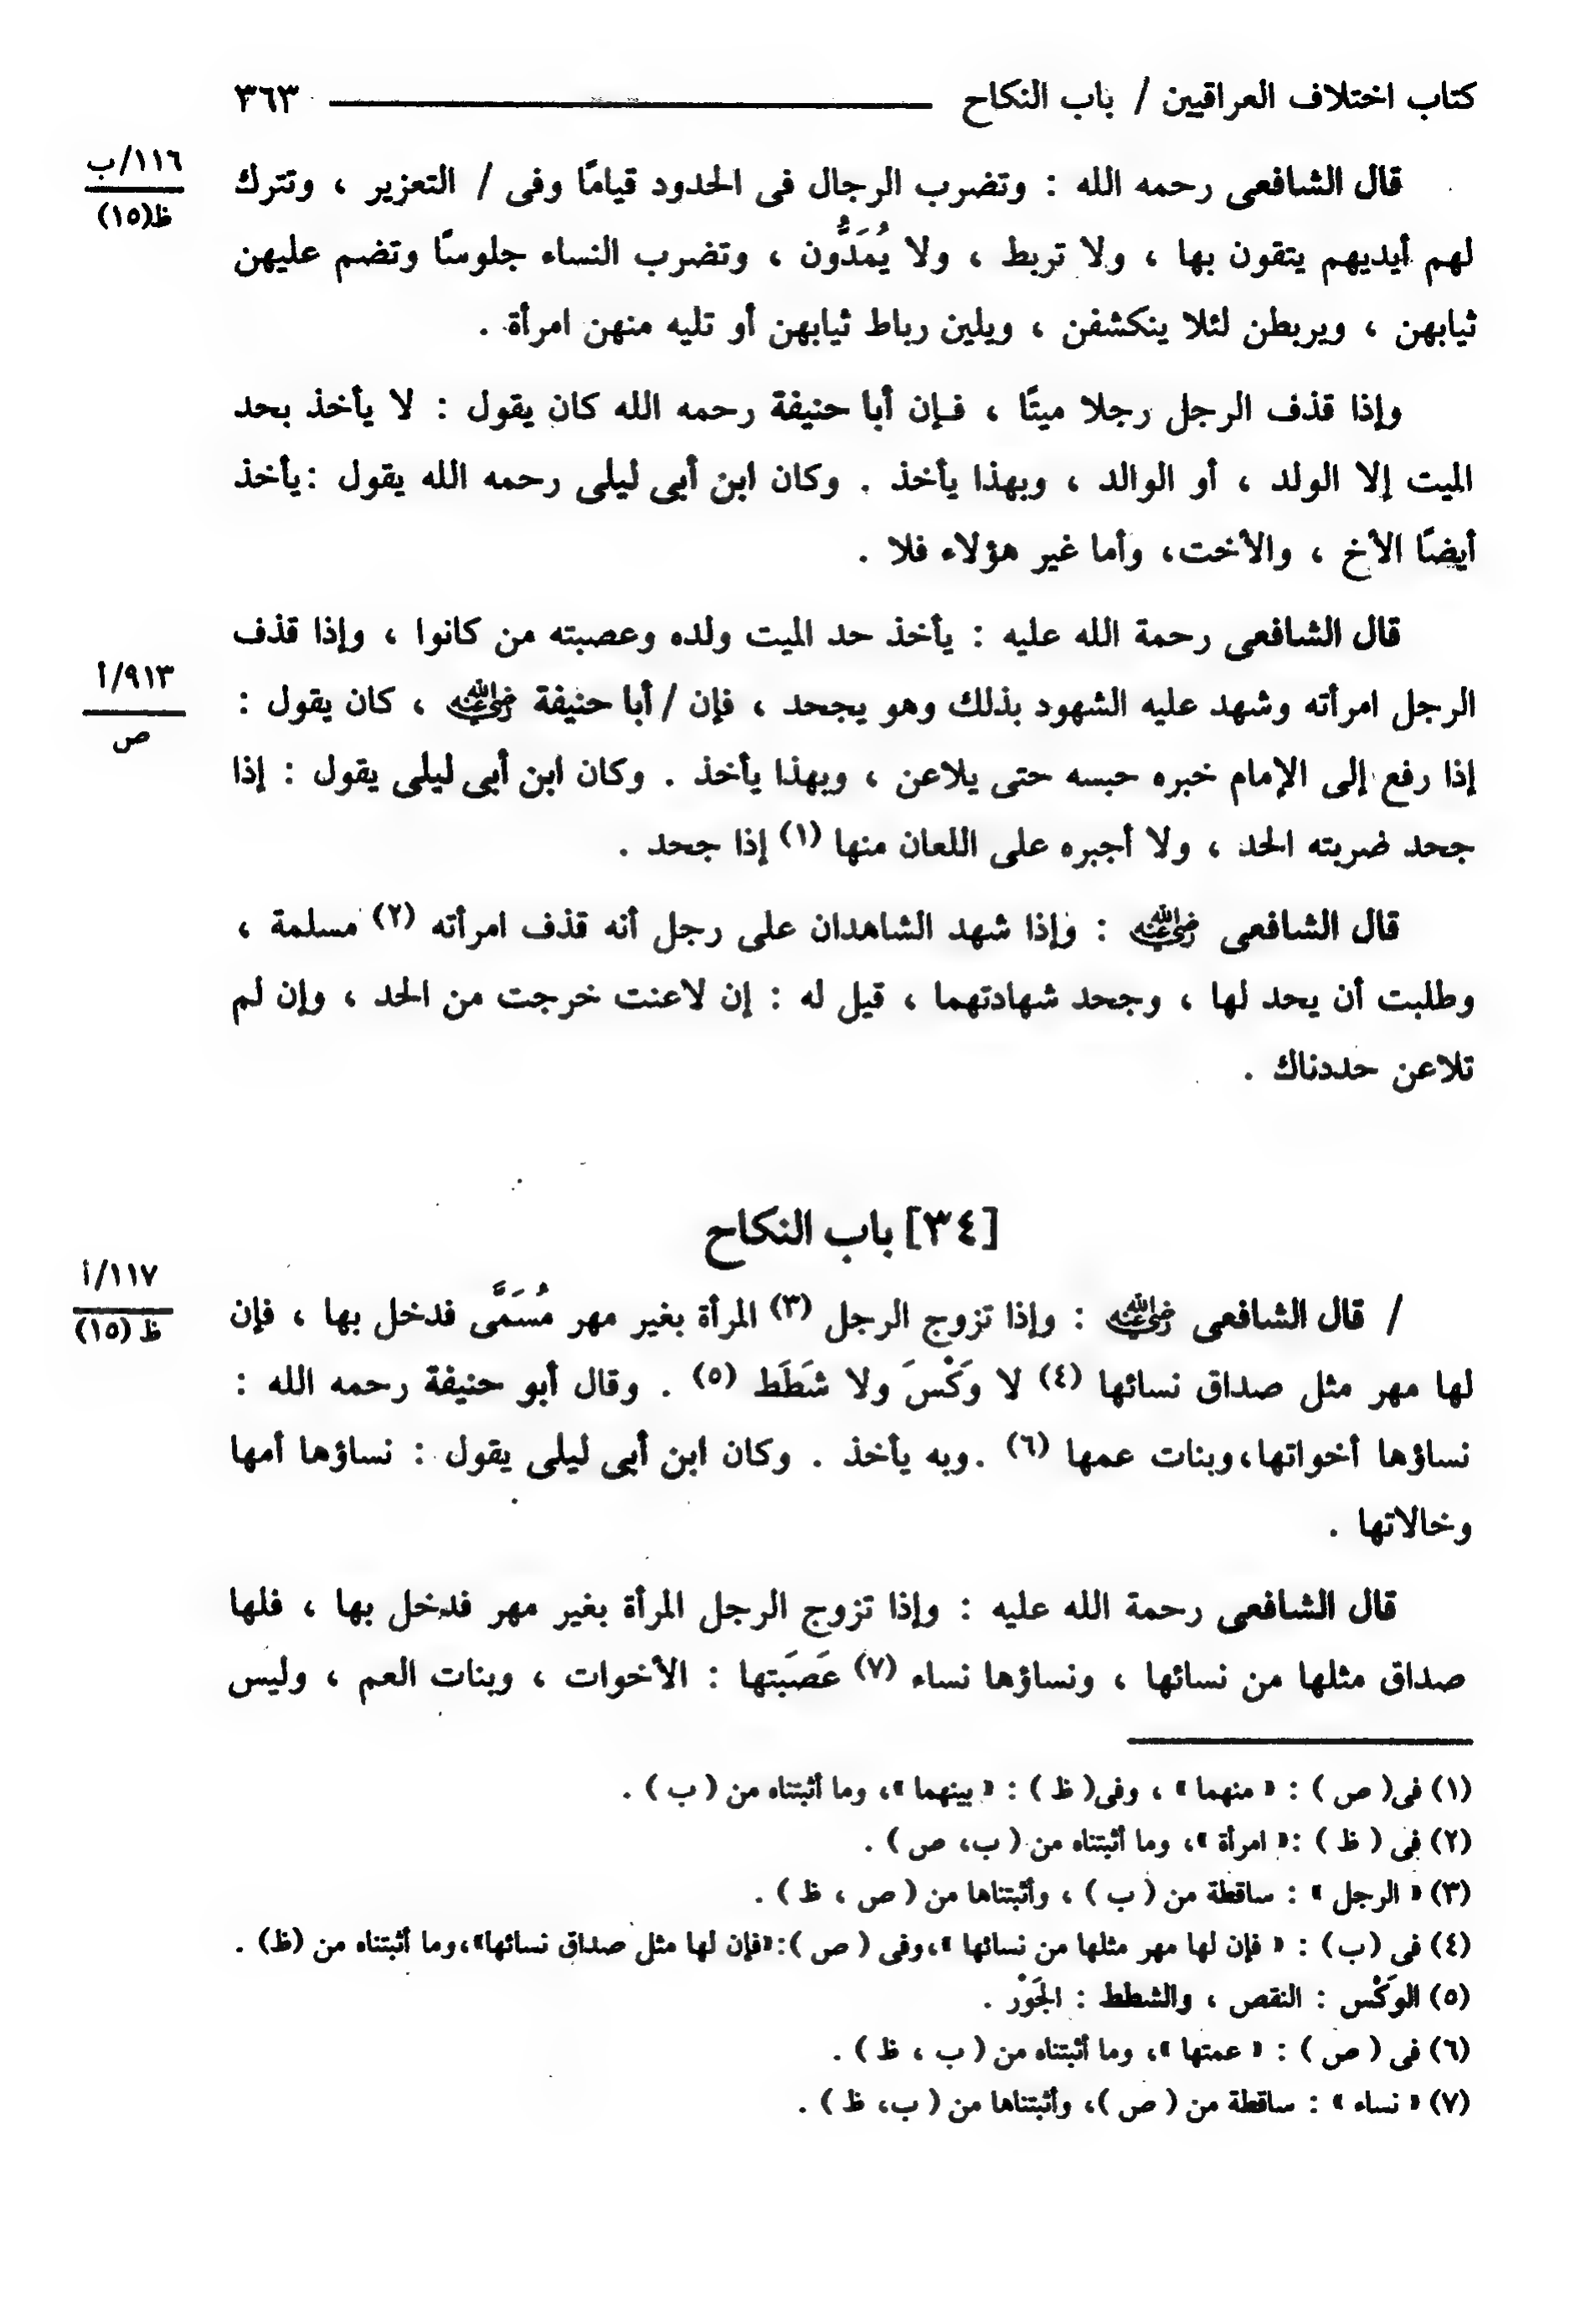 كتاب اختلاف العراقيين / باب النكاح ٣٦٣
١١٦/ب
ظ(١٥)
قال الشافعى رحمه الله : وتضرب الرجال فى الحدود قيامًا وفى / التعزير ، وتترك
لهم أيديهم يتقون بها ، ولا تربط ، ولا يُمَدُّون ، وتضرب النساء جلوسًا وتضم عليهن
ثيابهن ، ويربطن لئلا ينكشفن ، ويلين رباط ثيابهن أو تليه منهن امرأة .
وإذا قذف الرجل رجلا ميتًا ، فإن أبا حنيفة رحمه الله كان يقول : لا يأخذ بحد
الميت إلا الولد ، أو الوالد ، وبهذا يأخذ . وكان ابن أبى ليلى رحمه الله يقول :يأخذ
أيضًا الأخ ، والأخت، وأما غير هؤلاء فلا .
قال الشافعى رحمة الله عليه : يأخذ حد الميت ولده وعصبته من كانوا ، وإذا قذف
٩١٣/أ
ص
الرجل امرأته وشهد عليه الشهود بذلك وهو يجحد ، فإن / أبا حنيفة رضي الله عنه ، كان يقول :
إذا رفع إلى الإمام خبره حبسه حتى يلاعن ، وبهذا يأخذ . وكان ابن أبى ليلى يقول : إذا
جحد ضربته الحد ، ولا أجبره على اللعان منها (١) إذا جحد .
قال الشافعى رضي الله عنه : وإذا شهد الشاهدان على رجل أنه قذف امرأته (٢) مسلمة ،
وطلبت أن يحد لها ، وجحد شهادتهما ، قيل له : إن لاعنت خرجت من الحد ، وإن لم
تلاعن حددناك .
[٣٤] باب النكاح
١١٧/أ
ظ (١٥)
/ قال الشافعى رضي الله عنه : وإذا تزوج الرجل (٣) المرأة بغير مهر مُسَمًّى فدخل بها ، فإن
لها مهر مثل صداق نسائها (٤) لا وَكْسَ ولا شَطَط (٥) . وقال أبو حنيفة رحمه الله :
نساؤها أخواتها،وبنات عمها (٦) .وبه يأخذ . وكان ابن أبى ليلى يقول : نساؤها أمها
وخالاتها .
قال الشافعى رحمة الله عليه : وإذا تزوج الرجل المرأة بغير مهر فدخل بها ، فلها
صداق مثلها من نسائها ، ونساؤها نساء (٧) عَصَبَتها : الأخوات ، وبنات العم ، وليس
(١) فى( ص ) : « منهما » ، وفى( ظ ) : « بينهما »، وما أثبتناه من ( ب ) .
(٢) فى ( ظ ) :« امرأة »، وما أثبتناه من ( ب، ص ) .
(٣) « الرجل » : ساقطة من ( ب ) ، وأثبتناها من ( ص ، ظ ) .
(٤) فى (ب) : « فإن لها مهر مثلها من نسائها »،وفى ( ص ):«فإن لها مثل صداق نسائها»،وما أثبتناه من (ظ) .
(٥) الوَكْس : النقص ، والشطط : الجَوْر .
(٦) فى ( ص ) : « عمتها »، وما أثبتناه من ( ب ، ظ ) .
(٧) « نساء » : ساقطة من ( ص )، وأثبتناها من ( ب، ظ ) .